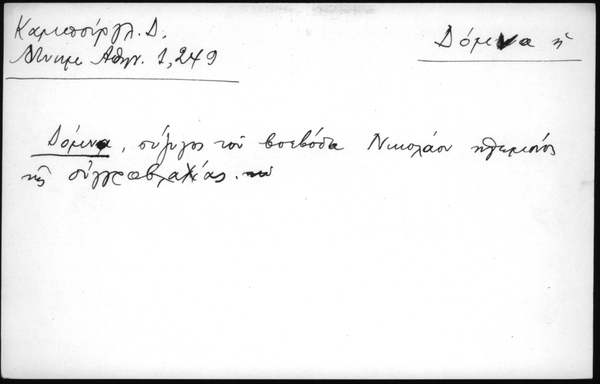 Καμπούρογλ. Δ.
Δόμενα ἡ
Μνημ. Αθην. 1,249
Δόμενα, σύζυγος τοῦ βοεβόδα Νικολάου ηγεμόνος
τῆς οὐγγροβλαχίας.